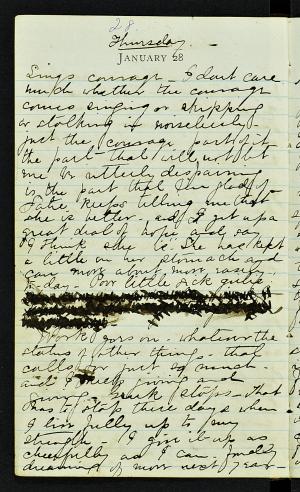 28
Thursday
JANUARY 28
Sings courage - I don't care
much whether the courage
comes singing or skipping
or stalking in noiselessly -
just the courage part of it
the part that will not let
me be utterly despairing
is the part that I'm glad of -
Kefos telling me that
she is better - and I get up a
great deal of hope and say
I think she is. She has kept
a little on her stomach and
can move about more easily
to-day - Poor little sick
Work goes on - whatever the
status of other things - that
calls for just so much -
and I keep giving and
giving - work stops - that
has to stop these days when
I live fully up to my
strength - I give it up as
cheerfully as I can -
dreaming of more next year -